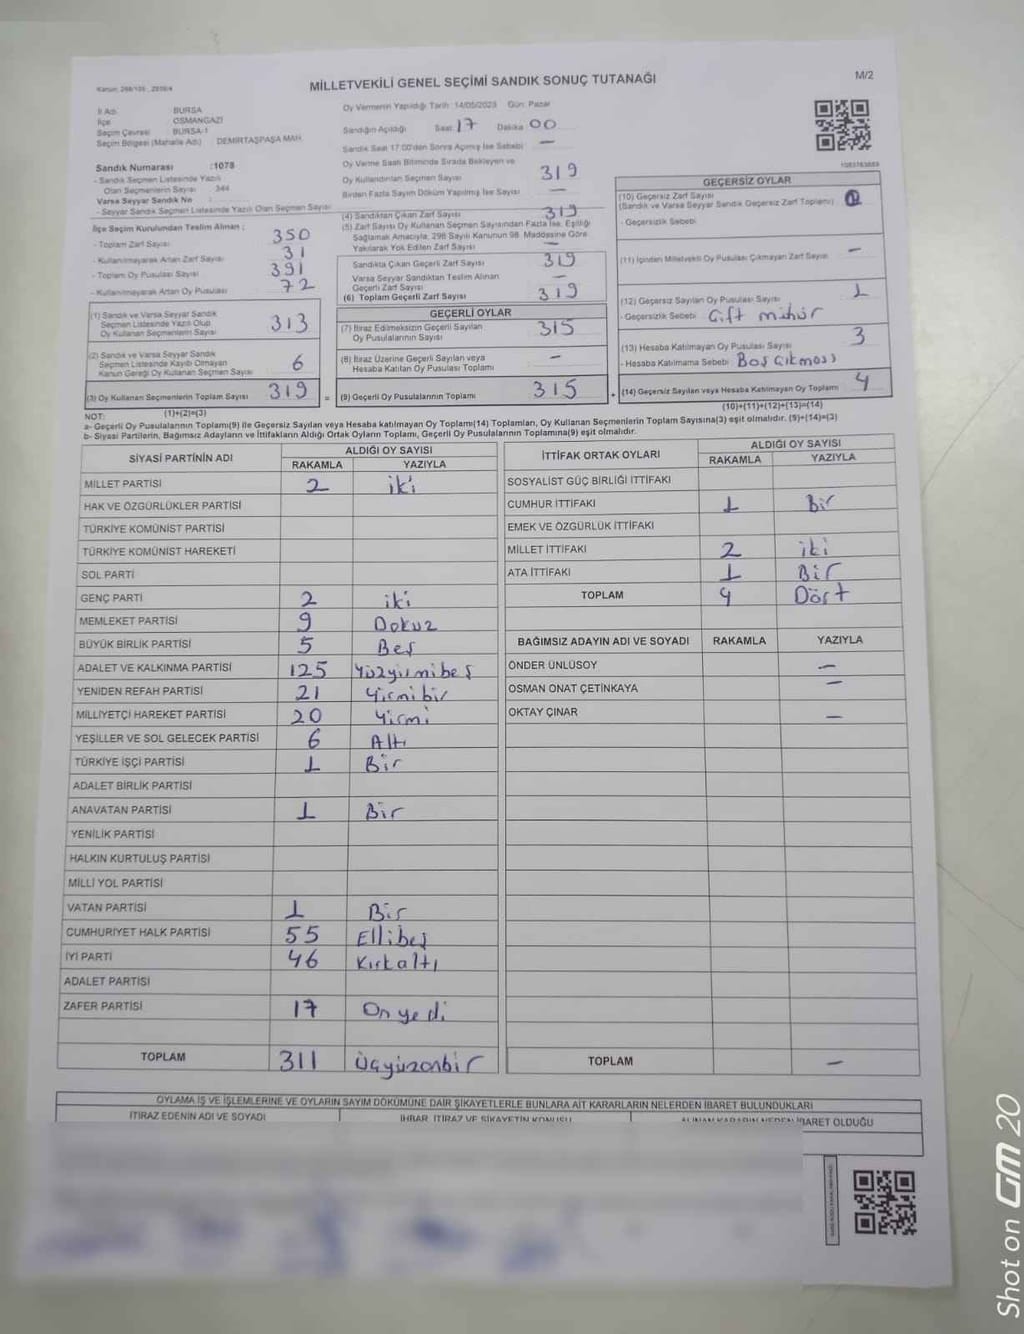 MİLLETVEKİLİ GENEL SEÇİMİ SANDIK SONUÇ TUTANAĞI
M/2
İl Adı BURSA
İlçe OSMANGAZİ
Seçim Çevresi BURSA-1
Seçim Bölgesi (Mahalle Adı) DEMİRTAŞPAŞA MAH.
Oy Vermenin Yapıldığı Tarih: 14/05/2023 Gün: Pazar
Sandığın Açıldığı Saat 17 Dakika 00
Sandık Saat 17:00'den Sonra Açılmış İse Sebebi —
Sandık Numarası :1078
- Sandık Seçmen Listesinde Yazılı
Olan Seçmenlerin Sayısı 344
Varsa Seyyar Sandık No
- Seyyar Sandık Seçmen Listesinde Yazılı Olan Seçmen Sayısı
Oy Verme Saati Bitiminde Sırada Bekleyen ve
Oy Kullandırılan Seçmen Sayısı 319
Birden Fazla Sayım Döküm Yapılmış İse Sayısı —
İlçe Seçim Kurulundan Teslim Alınan :
- Toplam Zarf Sayısı 350
- Kullanılmayarak Artan Zarf Sayısı 31
- Toplam Oy Pusulası Sayısı 391
- Kullanılmayarak Artan Oy Pusulası 72
(1) Sandık ve Varsa Seyyar Sandık
Seçmen Listesinde Yazılı Olup
Oy Kullanan Seçmenlerin Sayısı 313
(2) Sandık ve Varsa Seyyar Sandık
Seçmen Listesinde Kaydı Olmayan
Kanun Gereği Oy Kullanan Seçmen Sayısı 6
(3) Oy Kullanan Seçmenlerin Toplam Sayısı 319
(1)+(2)=(3)
(4) Sandıktan Çıkan Zarf Sayısı 319
(5) Zarf Sayısı Oy Kullanan Seçmen Sayısından Fazla İse, Eşitliği
Sağlamak Amacıyla, 298 Sayılı Kanunun 98. Maddesine Göre
Yakılarak Yok Edilen Zarf Sayısı —
Sandıkta Çıkan Geçerli Zarf Sayısı 319
Varsa Seyyar Sandıktan Teslim Alınan
Geçerli Zarf Sayısı —
(6) Toplam Geçerli Zarf Sayısı 319
GEÇERLİ OYLAR
(7) İtiraz Edilmeksizin Geçerli Sayılan
Oy Pusulalarının Sayısı 315
(8) İtiraz Üzerine Geçerli Sayılan veya
Hesaba Katılan Oy Pusulası Toplamı —
= (9) Geçerli Oy Pusulalarının Toplamı 315
GEÇERSİZ OYLAR
(10) Geçersiz Zarf Sayısı
(Sandık ve Varsa Seyyar Sandık Geçersiz Zarf Toplamı)
- Geçersizlik Sebebi
(11) İçinden Milletvekili Oy Pusulası Çıkmayan Zarf Sayısı —
(12) Geçersiz Sayılan Oy Pusulası Sayısı 1
- Geçersizlik Sebebi Çift mühür
(13) Hesaba Katılmayan Oy Pusulası Sayısı 3
- Hesaba Katılmama Sebebi Boş çıkması
+ (14) Geçersiz Sayılan veya Hesaba Katılmayan Oy Toplamı 4
(10)+(11)+(12)+(13)=(14)
NOT:
a- Geçerli Oy Pusulalarının Toplamı(9) ile Geçersiz Sayılan veya Hesaba Katılmayan Oy Toplamı(14) Toplamları, Oy Kullanan Seçmenlerin Toplam Sayısına(3) eşit olmalıdır. (9)+(14)=(3)
b- Siyasi Partilerin, Bağımsız Adayların ve İttifakların Aldığı Ortak Oyların Toplamı, Geçerli Oy Pusulalarının Toplamına(9) eşit olmalıdır.
SİYASİ PARTİNİN ADI ALDIĞI OY SAYISI
RAKAMLA YAZIYLA
MİLLET PARTİSİ 2 iki
HAK VE ÖZGÜRLÜKLER PARTİSİ
TÜRKİYE KOMÜNİST PARTİSİ
TÜRKİYE KOMÜNİST HAREKETİ
SOL PARTİ
GENÇ PARTİ 2 iki
MEMLEKET PARTİSİ 9 Dokuz
BÜYÜK BİRLİK PARTİSİ 5 Beş
ADALET VE KALKINMA PARTİSİ 125 Yüzyirmibeş
YENİDEN REFAH PARTİSİ 21 Yirmibir
MİLLİYETÇİ HAREKET PARTİSİ 20 Yirmi
YEŞİLLER VE SOL GELECEK PARTİSİ 6 Altı
TÜRKİYE İŞÇİ PARTİSİ 1 Bir
ADALET BİRLİK PARTİSİ
ANAVATAN PARTİSİ 1 Bir
YENİLİK PARTİSİ
HALKIN KURTULUŞ PARTİSİ
MİLLİ YOL PARTİSİ
VATAN PARTİSİ 1 Bir
CUMHURİYET HALK PARTİSİ 55 Ellibeş
İYİ PARTİ 46 Kırkaltı
ADALET PARTİSİ
ZAFER PARTİSİ 17 On yedi
TOPLAM 311 Üçyüzonbir
İTTİFAK ORTAK OYLARI ALDIĞI OY SAYISI
RAKAMLA YAZIYLA
SOSYALİST GÜÇ BİRLİĞİ İTTİFAKI
CUMHUR İTTİFAKI 1 Bir
EMEK VE ÖZGÜRLÜK İTTİFAKI
MİLLET İTTİFAKI 2 iki
ATA İTTİFAKI 1 Bir
TOPLAM 4 Dört
BAĞIMSIZ ADAYIN ADI VE SOYADI RAKAMLA YAZIYLA
ÖNDER ÜNLÜSOY —
OSMAN ONAT ÇETİNKAYA —
OKTAY ÇINAR —
TOPLAM —
OYLAMA İŞ VE İŞLEMLERİNE VE OYLARIN SAYIM DÖKÜMÜNE DAİR ŞİKAYETLERLE BUNLARA AİT KARARLARIN NELERDEN İBARET BULUNDUKLARI
İTİRAZ EDENİN ADI VE SOYADI İHBAR, İTİRAZ VE ŞİKAYETİN KONUSU ALINAN KARARIN NEDEN İBARET OLDUĞU
Shot on GM 20